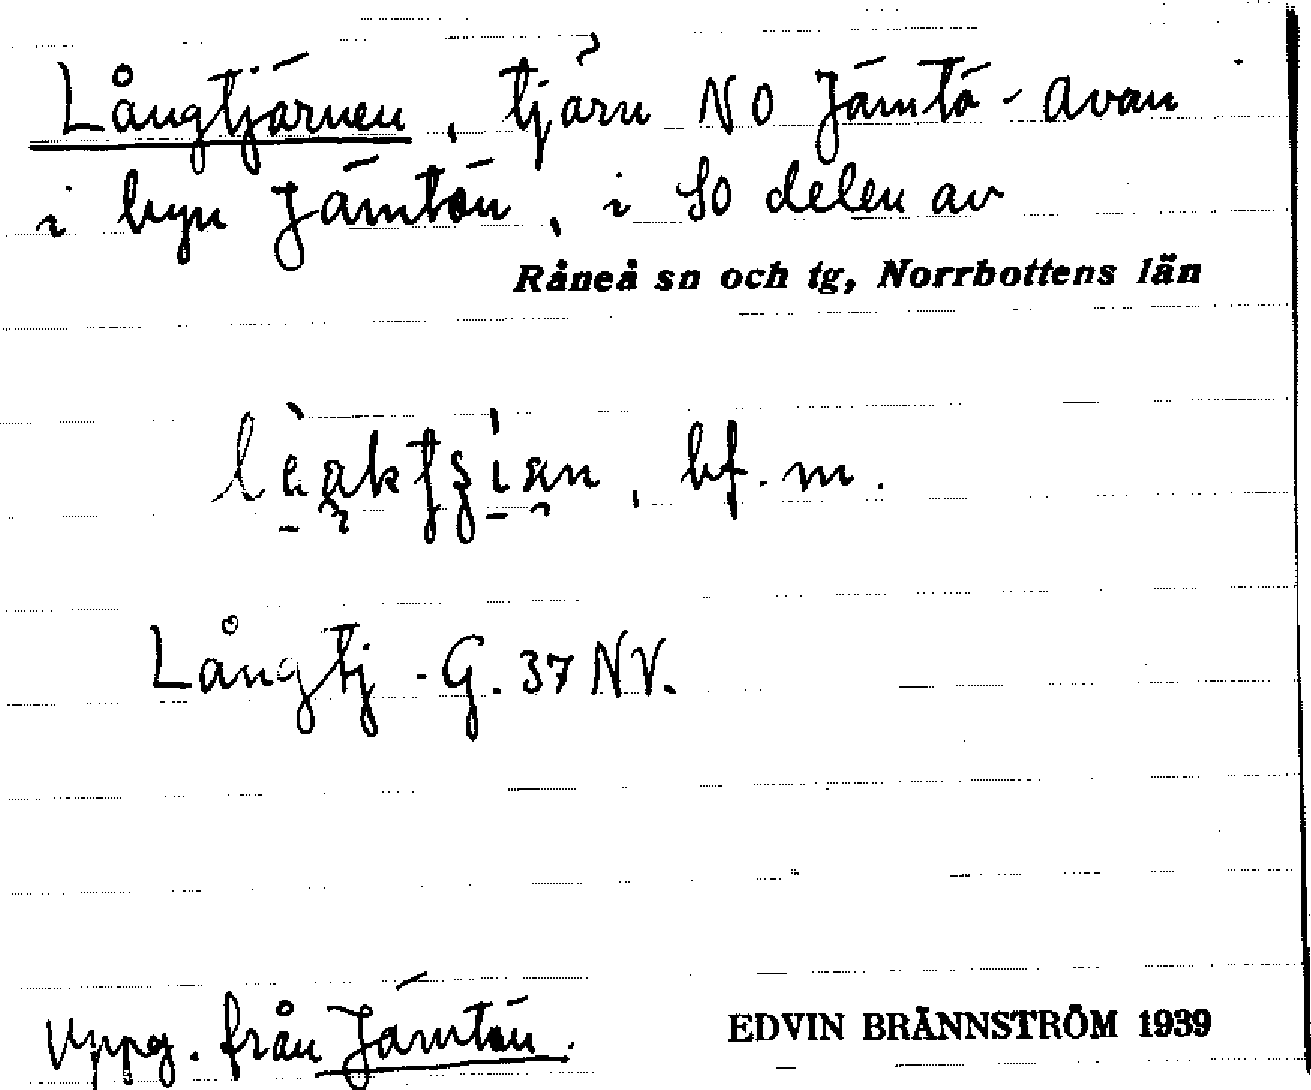 Långtjärnen, tjärn NO Jämtö-Avan
i byn Jämtön, i SO delen av
Råneå sn och tg, Norrbottens län
bf. m.
Långtj - G. 37 NV.
Uppg. från Jämtön.
EDVIN BRÄNNSTRÖM 1939